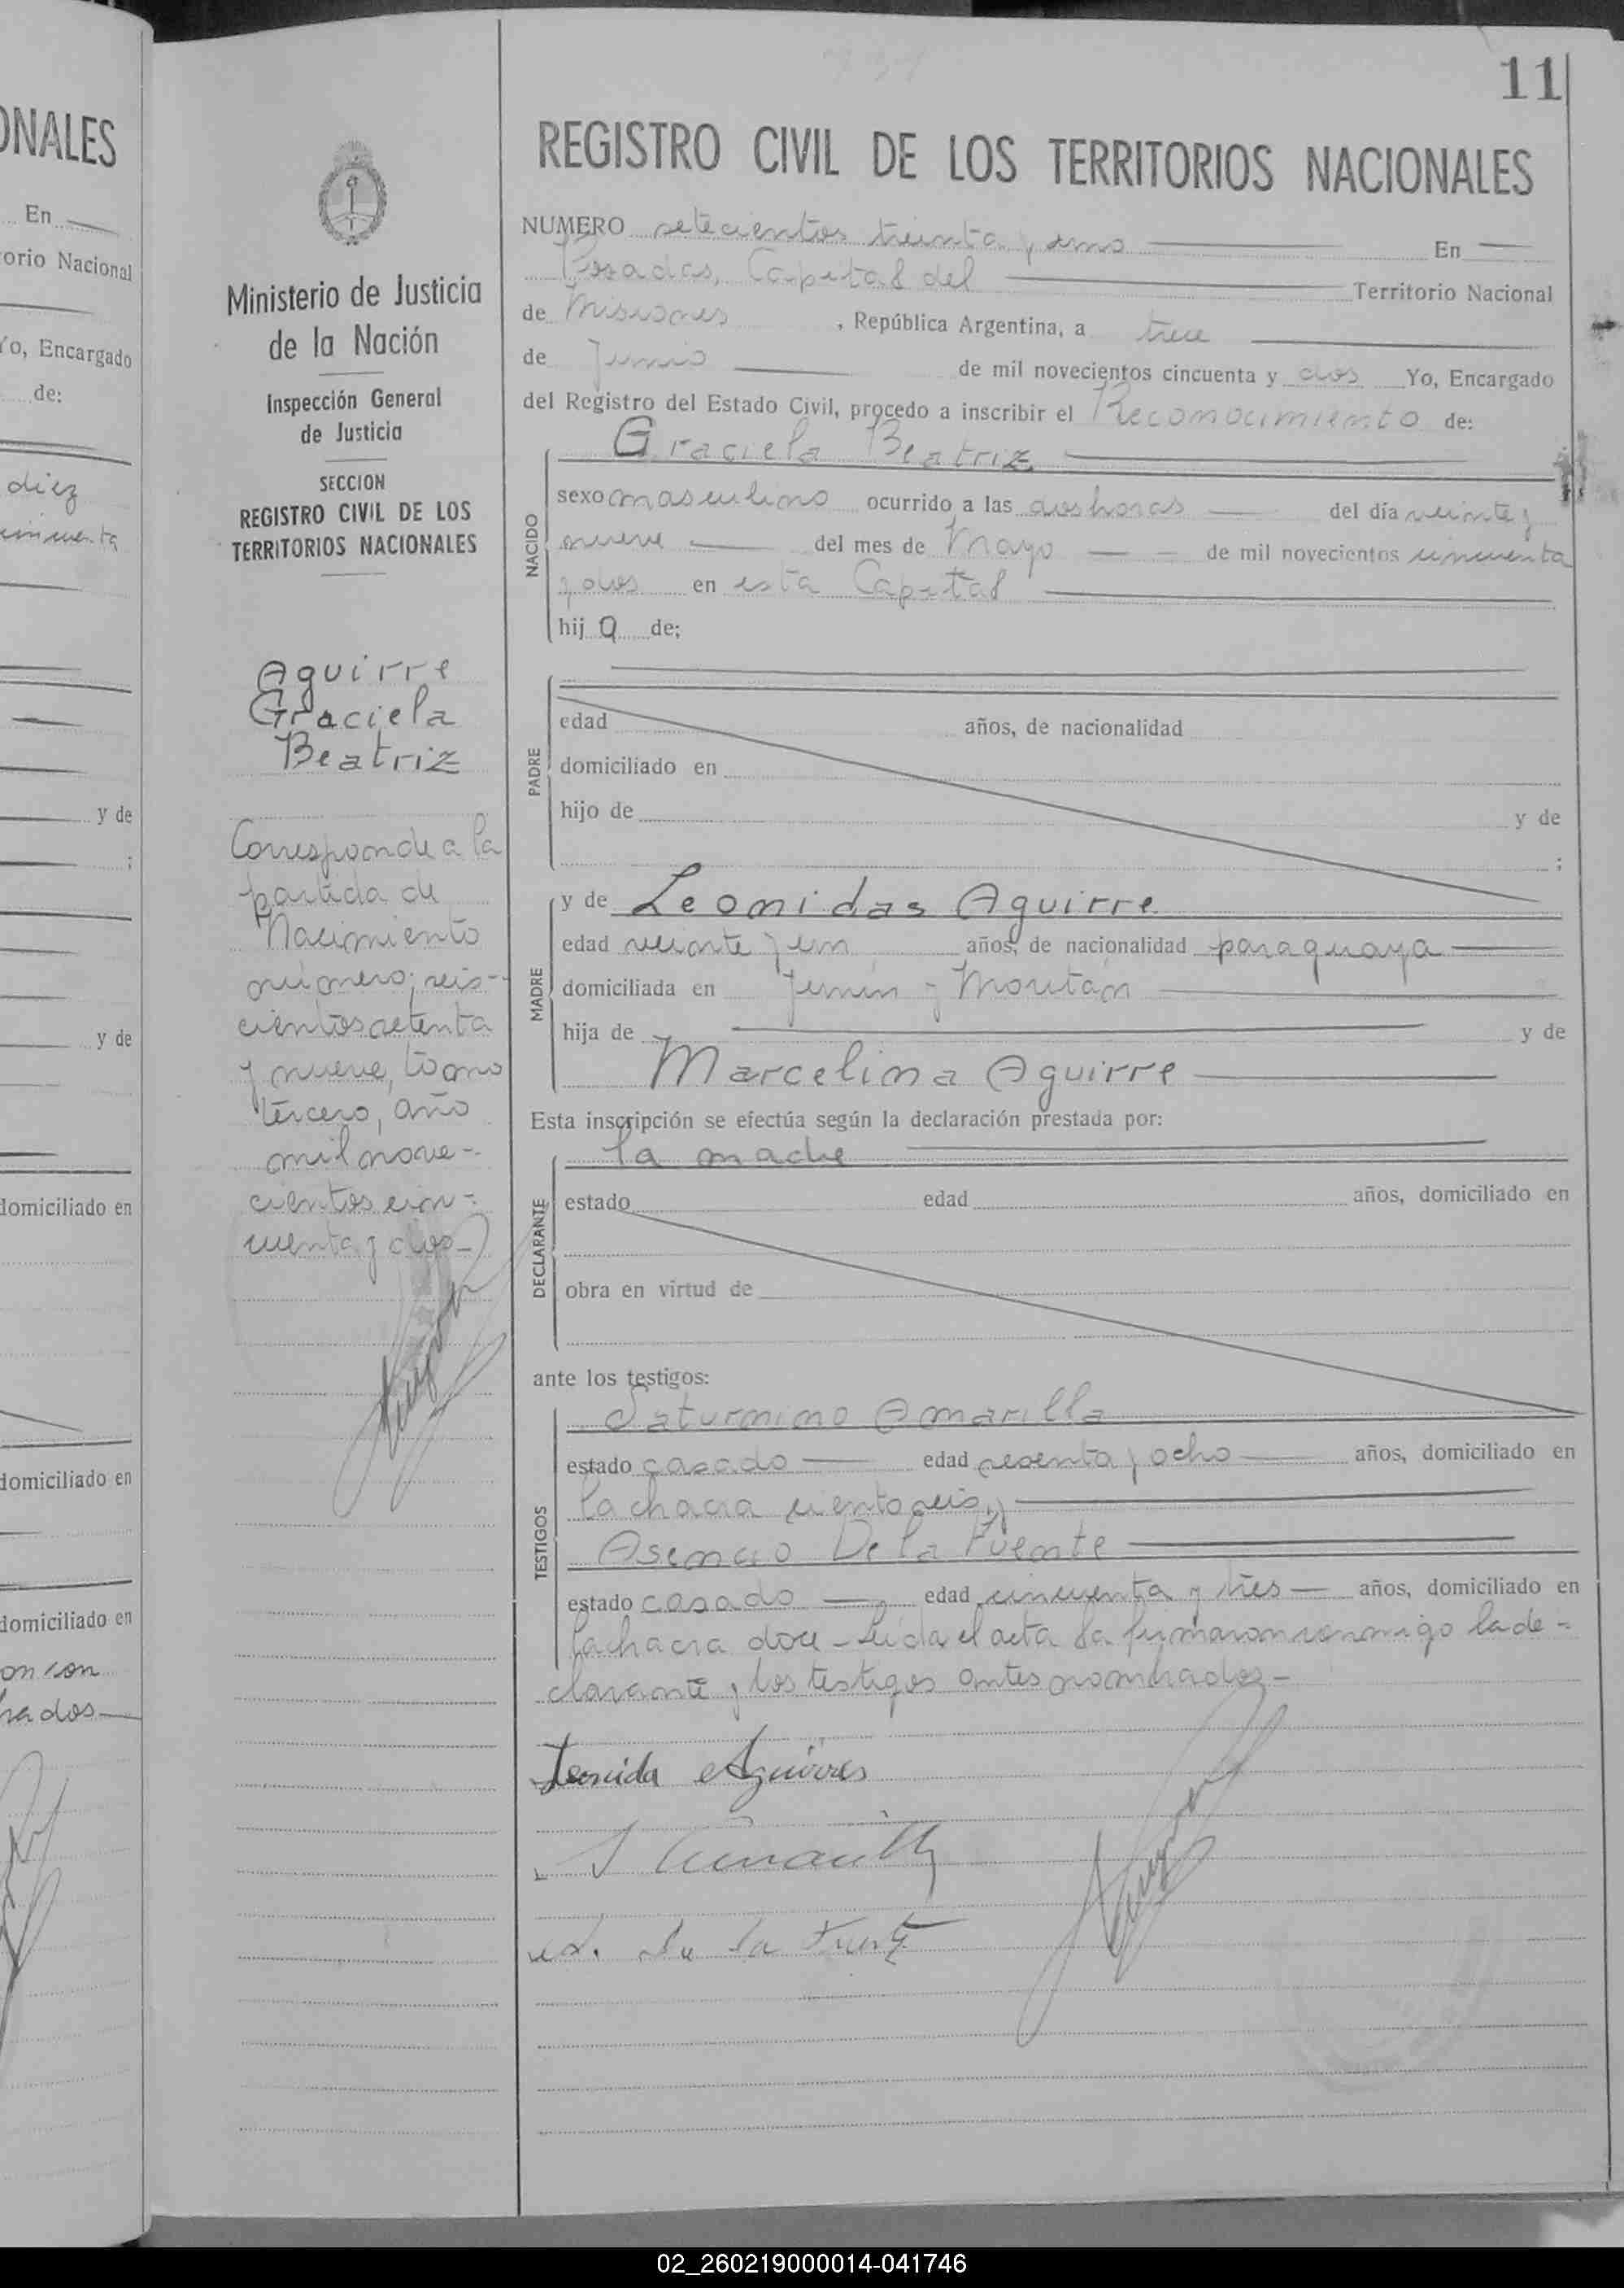 11
ONALES
En
orio Nacional
Yo, Encargado
de:
diez
cincuenta
y de
;
y de
domiciliado en
domiciliado en
domiciliado en
on con
rados
Ministerio de Justicia
de la Nación
Inspección General
de Justicia
SECCION
REGISTRO CIVIL DE LOS
TERRITORIOS NACIONALES
Aguirre
Graciela
Beatriz
Corresponde a la
partida de
Nacimiento
número; seis-
cientos setenta
y nueve, tomo
tercero, año
mil nove-
cientos cin-
cuenta y dos-
REGISTRO CIVIL DE LOS TERRITORIOS NACIONALES
NUMERO setecientos treinta y uno En
Posadas, Capital del Territorio Nacional
de Misiones , República Argentina, a trece
de Junio de mil novecientos cincuenta y dos Yo, Encargado
del Registro del Estado Civil, procedo a inscribir el Reconocimiento de:
Graciela Beatriz
NACIDO
sexo masculino ocurrido a las dos horas del día veinte y
nueve del mes de Mayo de mil novecientos cincuenta
y dos en esta Capital
hij a de;
PADRE
edad años, de nacionalidad
domiciliado en
hijo de y de
;
MADRE
y de Leonidas Aguirre
edad veinte y un años, de nacionalidad paraguaya
domiciliada en Junín y Moritán
hija de y de
Marcelina Aguirre
Esta inscripción se efectúa según la declaración prestada por:
la madre
DECLARANTE
estado edad años, domiciliado en
obra en virtud de
ante los testigos:
TESTIGOS
Saturnino Amarilla
estado casado edad sesenta y ocho años, domiciliado en
la chacra ciento seis, y
Asencio De la Fuente
estado casado edad cincuenta y tres años, domiciliado en
la chacra doce - Leída el acta la firmaron conmigo la de-
clarante y los testigos antes nombrados-
Leonida Aguirres
S Amarilla
As. De la Fuente
02_260219000014-041746